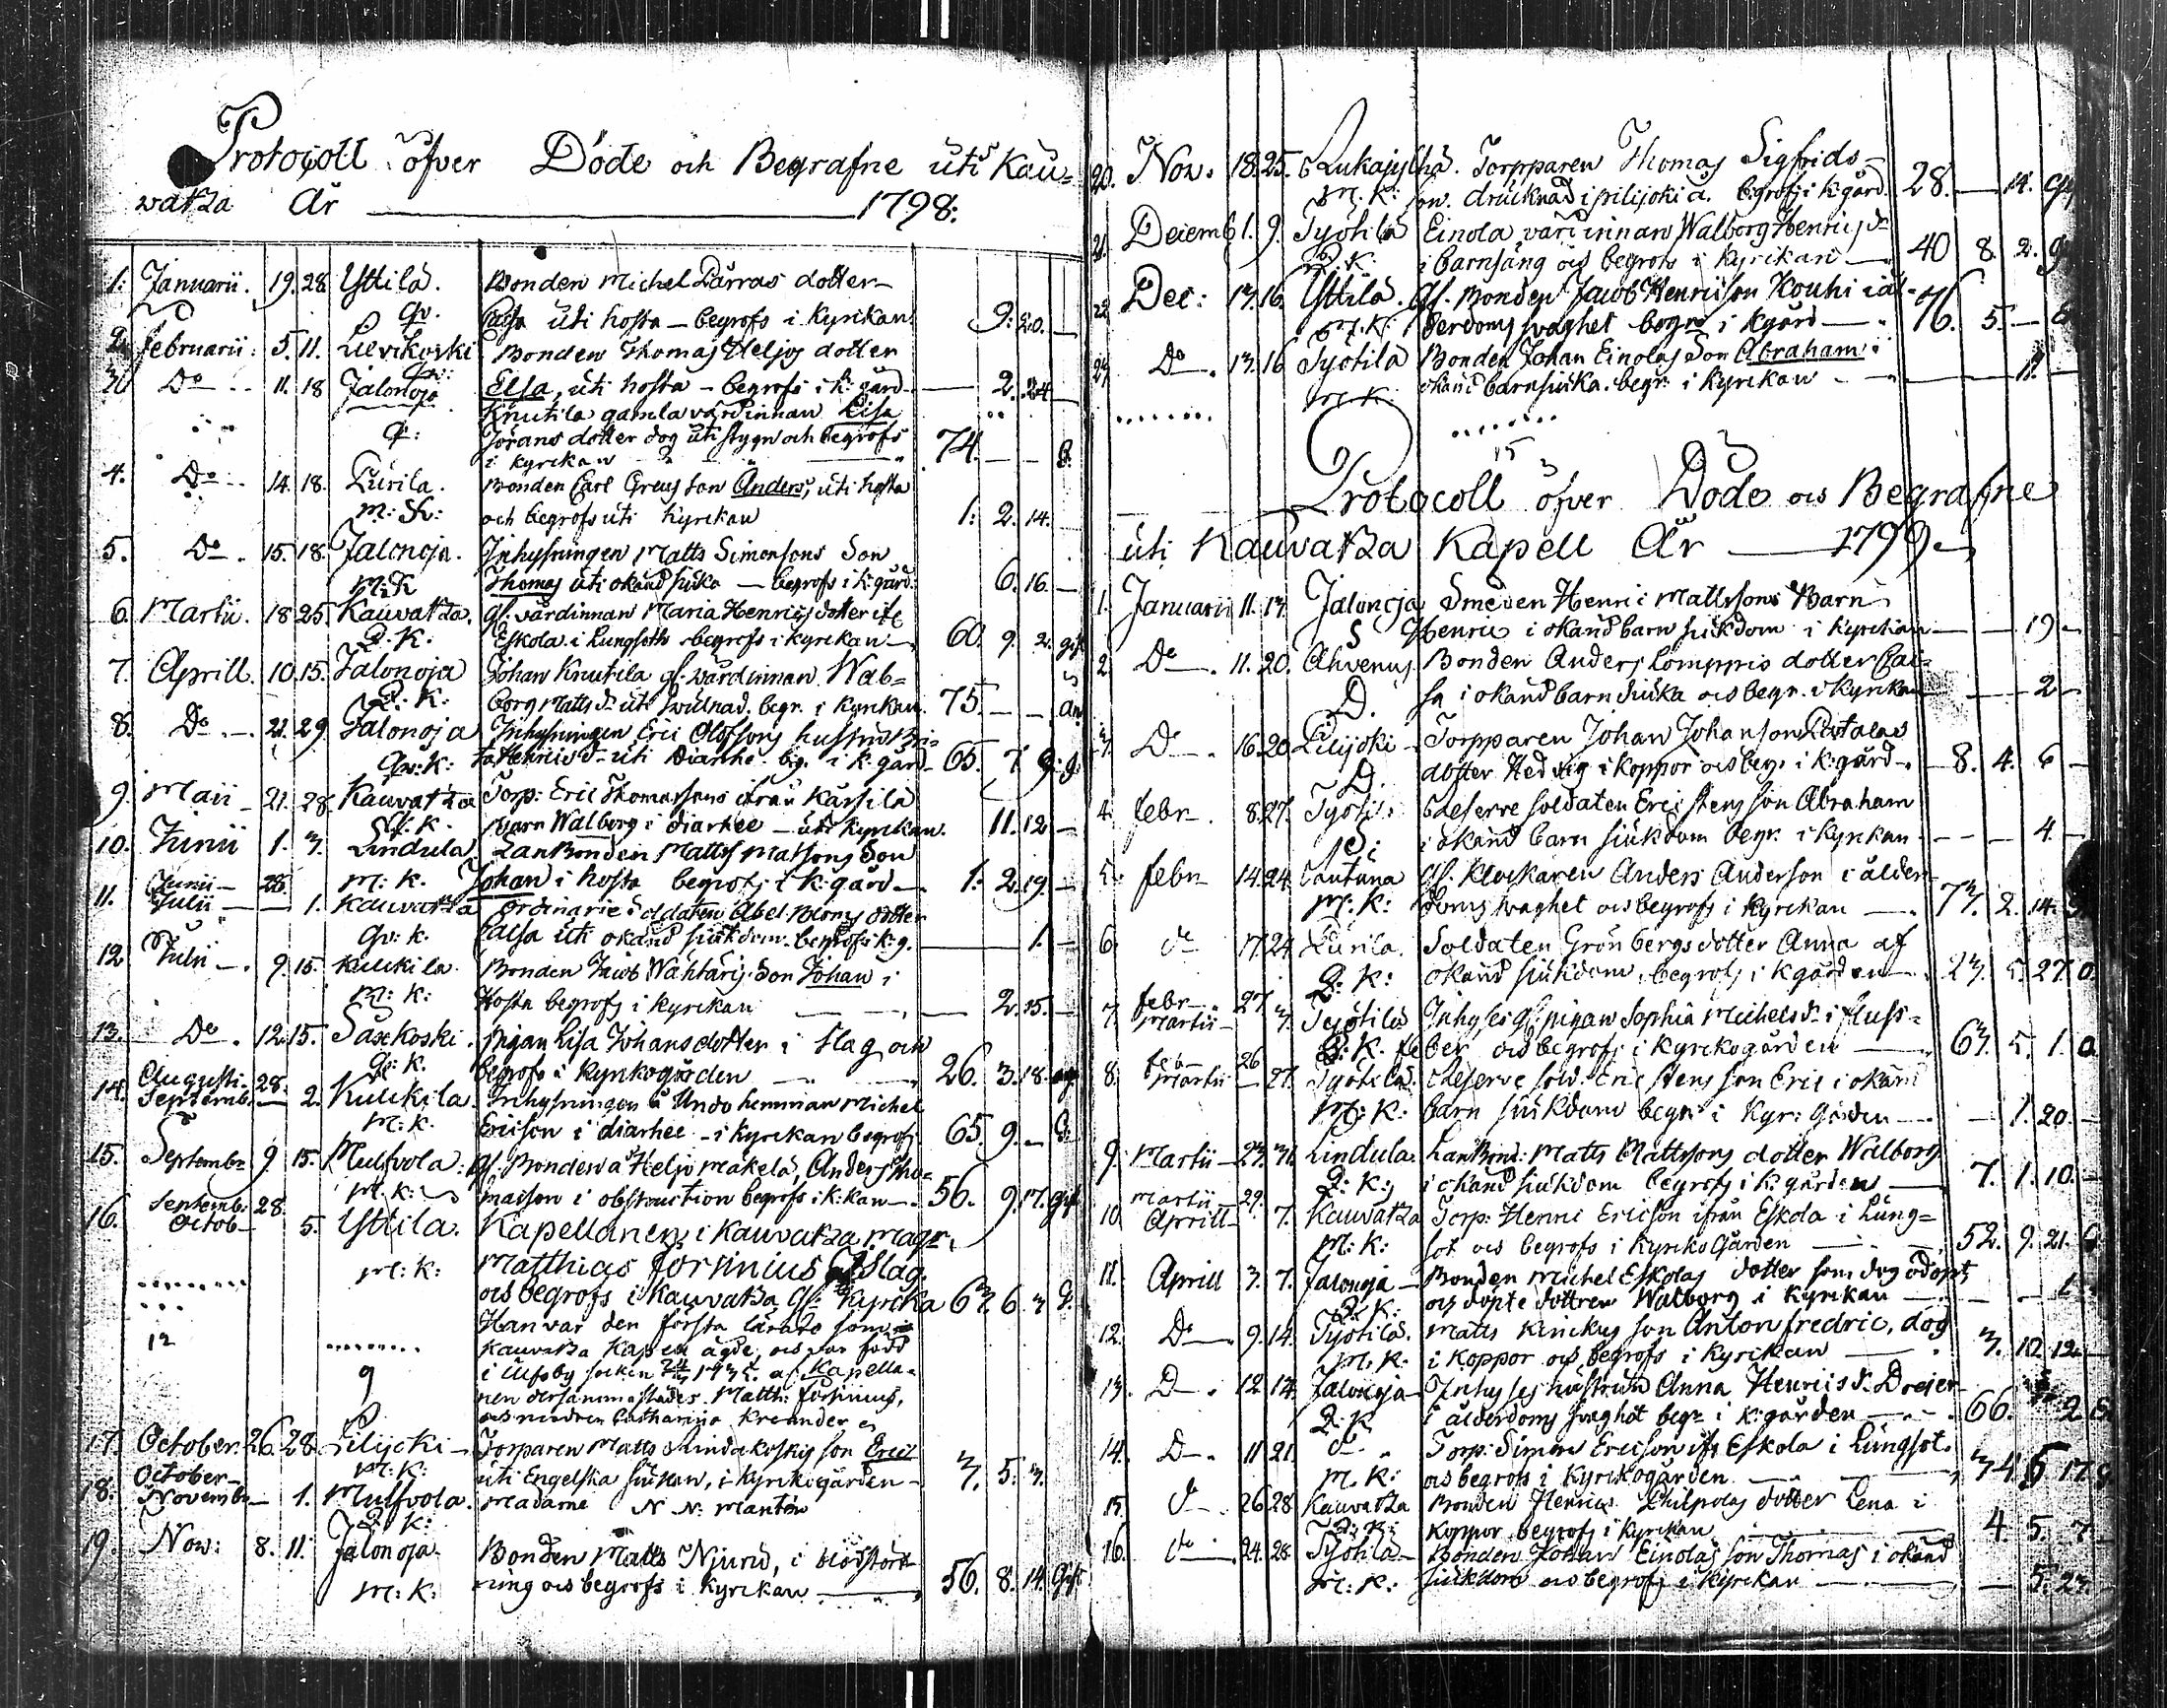 Protocoll öfver Döde och Begrafne uti Kau=
watza År 1798:
1. Januarii. 19. 28. Yttilä. Bonden Michel Pärras dotter
Qv. Caisa uti hosta – begrofs i Kyrkan 9. 20. –
2. Februarii: 5. 11. Lievikoski Bonden Thomas Heljos dotter
Qv: Elsa, uti hosta – begrofs i k: gård – 2. 24.
3. Do 11. 18 Jalonoja Knutila gamla värdinnan Lisa
Q: Jörans dotter dog uti stygn och begrofs
i kyrkan 74. – –
4. Do 14. 18. Purila. Bonden Carl Greus son Anders, uti hosta
m: K: och begrofs uti Kyrckan 1: 2. 14.
5. Do. 15. 18. Jalonoja. Inhysningen Matts Simonsons Son
m: K Thomas uti okänd siuka – begrofs i k: gård. 6. 16. –
6. Martii. 18 25 Kauvatza. gl: värdinnan Maria Henrics dotter
Q. K. Eskola i Lungsoth begrofs i kyrckan 60. 9. 2. gift
7. Aprill. 10. 15. Jalonoja Johan Knutila gl. wärdinnan Wal=
Q: K: borg Matts dr uti swulnad. begr. i Kyrckan. 75. – –
8. Do – 21. 29 Jalonoja Inhysningen Eric Olofssons hustru Bri=
Qv: K: ta Henricsd. uti Diarhé. bg. i k: gård – 65. 7. 9. g.
9. Maii – 21. 28. Kauvatza Torp: Eric Thomassons ifrån Karsila
Q. K. barn Walborg i diarhee – uti kyrckan. 11. 12 –
10. Junii 1. 3. Lindula Lanbonden Matts Matsons Son
m: K. Johan i hosta begrofs i k: gård – 1: 2. 19. –
11. Junii – 28.
Julii – – 1. Kauvatza ordinarie soldaten Abel Bloms dotter
Qv: k. Caisa uti okänd siukdom. begrofs i k: g. 1. –
12 Julii –. 9. 15. Kulckila. Bonden Jacob Wähtäris Son Johan i
m: k: Hosta begrofs i kyrckan 2. 15. –
13. Do. 12. 15. Säxkoski. pigan Lisa Johansdotter i slag och
Q: K. begrofs i kyrckogården 26. 3. 18. og
14. Augusti. 28.
Septemb. – 2. Kulckila. Inhysningen å Undo hemman Michel
m: k. Ericson i diarhee – i kyrckan begrofs 65. 9. – G.
15. Septembr 9 15. Mulfvola: gl: Bonden å Heljo Mäkelä, Anders Tho=
m: k: masson i obstruction begrofs i k: kan – 56. 9. 17. gift
16. Septemb. 28.
Octob – 5. Yttila. Kapellanen i Kauvatza mag:r
m: k: Matthias Forsinius i slag.
och begrofs i Kauvatza gl: Kyrcka 63. 6. 3. G.
Han var den första lärare som
12 Kauvatza Kapell ägde, och var född
9 i Ulfsby socken 24/3 1735. af Kapella=
nen dersammastädes Matth: Forsinius,
och modren Catharina Kreander
17. October 26. 28. Pilijocki – Torparen Matts Lindakoskis son Eric
m: K: uti Engelska siukan, i kyrckogården – 3. 5. 3.
18. October –
Novembr – 1. Mulfvola. Madame N N: Mantén
Q K:
19. Nov: 8. 11. Jalonoja. Bonden Matts Njurd, i blodstört=
m: K: ning och begrofs i Kyrckan 56. 8. 14. Gift
20. Nov. 18. 25. Rukajylhä. Torpparen Thomas Sigfrids=
m. K: son. drucknad i pilijoki å. begrofs i k: gård 28. – 14.
21. Decemb 1. 9. Työtilä Einola värdinnan Walborg Henrics dr
Q: K. i barnsäng och begrofs i Kyrckan – 40 8. 2. g
22 Dec: 13. 16. Yttilä. gl. Bonden Jacob Henricson Kouhi i ål=
m. K: derdoms svaghet begr. i kgård 76. 5. –
23. Do. 13. 16 Työtila Bonden Johan Einolas Son Abraham i
m. K. okänd barnsiuka. begr: i Kyrckan 11. –
15
Protocoll öfver Döde och Begrafne
uti Kauvatza Kapell År 1799.
1. Januarii 11. 13. Jalonoja Smeden Henric Mattssons Barn
S Henric i okänd barn siukdom i kyrckan – – 19 –
2. Do. 11. 20. Ahvenus Bonden Anders Lomppris dotter Cai=
D. sa i okänd barn siuka och begr. i kyrckan – – 2 –
3. D –. 16. 20 Pilijoki – Torpparen Johan Johanson Ratalas
D. dotter Hedvig i koppor och begr. i k: gård – 8. 4. 6 –
4. Febr. 8. 27. Työtil: Reserve soldaten Eric Stens son Abraham
S: i okänd barn siukdom begr. i kyrckan – – – 4. –
5. Febr 14. 24. gl. Klockaren Anders Anderson i ålder=
m: K: doms svaghet och begrofs i kyrckan 73. 2. 14.
6. do 17. 24. Purila. Soldaten Grönbergs dotter Anna af
Q: K: okänd siukdom, begrofs i kgården 23. 5. 27. O.
7. Febr – 27.
Martii – 3. Työtilä Inhyses gl: pigan Sophia Michelsd: i fluss=
Q: K. feber och begrofs i kyrckogården 63. 5. 1. O
8. Feb 26
Martii – 27. Työtilä. Reserve sold: Eric Stens son Eric i okänd
m: K: barn siukdom begr. i Kyr: Gården – 1. 20. –
9. Martii – 23. 31. Lindula. Lanbond: Matts Mattssons dotter Walborg
Q: K: i okänd siukdom begrofs i k: gården 7. 1. 10. –
10. Martii – 29.
Aprill – 7. Kauvatza Torp: Henric Ericson ifrån Eskola i Lung=
m: K: sot och begrofs i kyrcko Gården 52. 9. 21. G
11. Aprill 3. 7. Jalonoja – Bonden Michel Eskolas dotter som dog odöpt,
Q K: och döpte dottren Walborg i kyrckan
12. Do. 9. 14. Työtilä. Matts Kinckus son Anton Fredric, dog
m. K. i koppor och begrofs i kyrckan 3. 10 12. –
13. D –. 12 14. Jalonoja – Inhyses hustrun Anna Henricsd. Dreier
Q: K i ålderdoms svaghet begr. i k: gården 66.
14. D –. 11 21. do. Torp: Simon Ericson ifr. Eskola i Lungsot.
m. K: och begrofs i kyrckogården 34 5 17
15. do – 26 28 Kauvatza Bonden Henrics Philpolas dotter Lena i
Q: K: Koppor begrofs i kyrckan 4. 5. 7.
16. do – 24. 28. Työtila – Bonden Johan Einolas son Thomas i okänd
m: K: siukdom och begrofs i kyrckan – 5. 23.